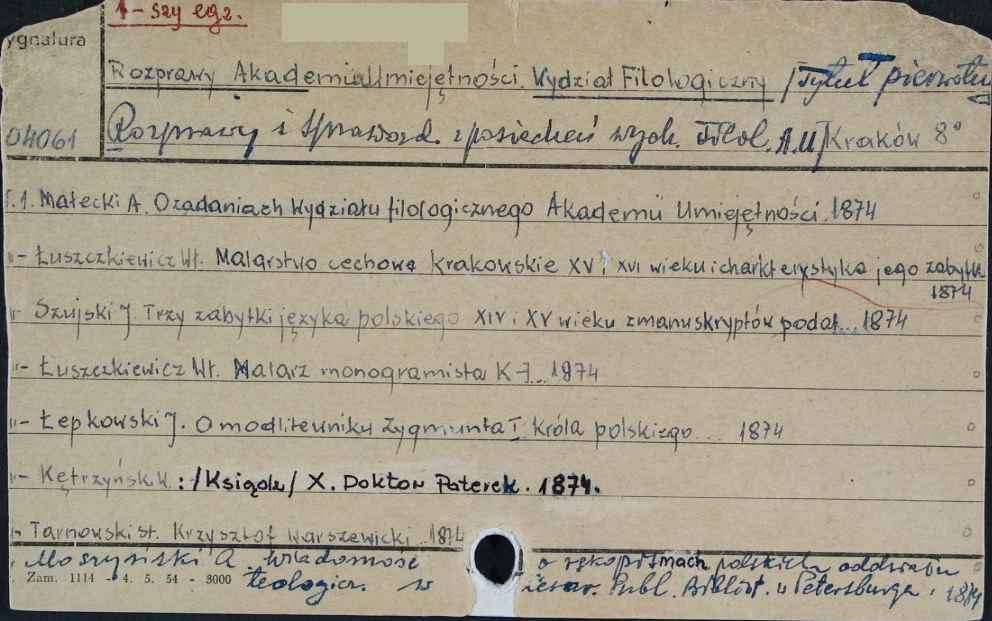 1-szy egz.
ygnatura
Rozprawy Akademia Umiejętności. Wydział Filologiczny /Tytuł pierwotny
04061 Rozprawy i Sprawozd. z posiedzeń wydz. Filol. A.U/ Kraków 8°
T.1. Małecki A. O zadaniach Wydziału filologicznego Akademii Umiejętności. 1874
"- Łuszczkiewicz Wł. Malarstwo cechowe krakowskie XV i XVI wieku i charkterystyka jego zabytk
1874
"- Szujski J. Trzy zabytki języka polskiego XIV i XV wieku z manuskryptów podał... 1874
"- Łuszczkiewicz Wł. Malarz monogramista K-J... 1874
"- Łepkowski J. O modlitewniku Zygmunta I króla polskiego ... 1874
"- Kętrzyńsk. W. : /Ksiądz/ X. Doktor Paterek. 1874.
"- Tarnowski St. Krzysztof Warszewicki .. 1874
Moszyński A. Wiadomość o rękopismach polskich oddziału
Zam. 1114 - 4. 5. 54 - 3000 teologicz. w cesar. Publ. Bibliot. w Petersburgu. 1874